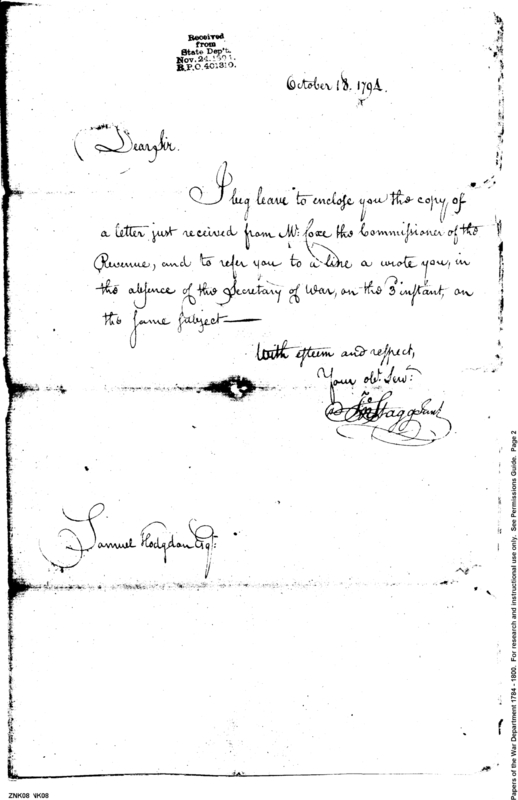 Received
from
State Dep't.
Nov. 24.1894.
R.P.O. 401310.
October 18. 1794.
Dear Sir.
I beg leave to enclose you the copy of
a letter just received from Mr. Coxe the Commissioner of the
Revenue, and to refer you to a line a wrote you, in
the absence of the Secretary of War, on the 3d instant, on
the same subject—
With esteem and respect,
Your obt. Servt.
Jno Stagg Junr
Samuel Hodgdon Esqr.
Papers of the War Department 1784 - 1800. For research and instructional use only. See Permissions Guide. Page 2
ZNK08 NK08